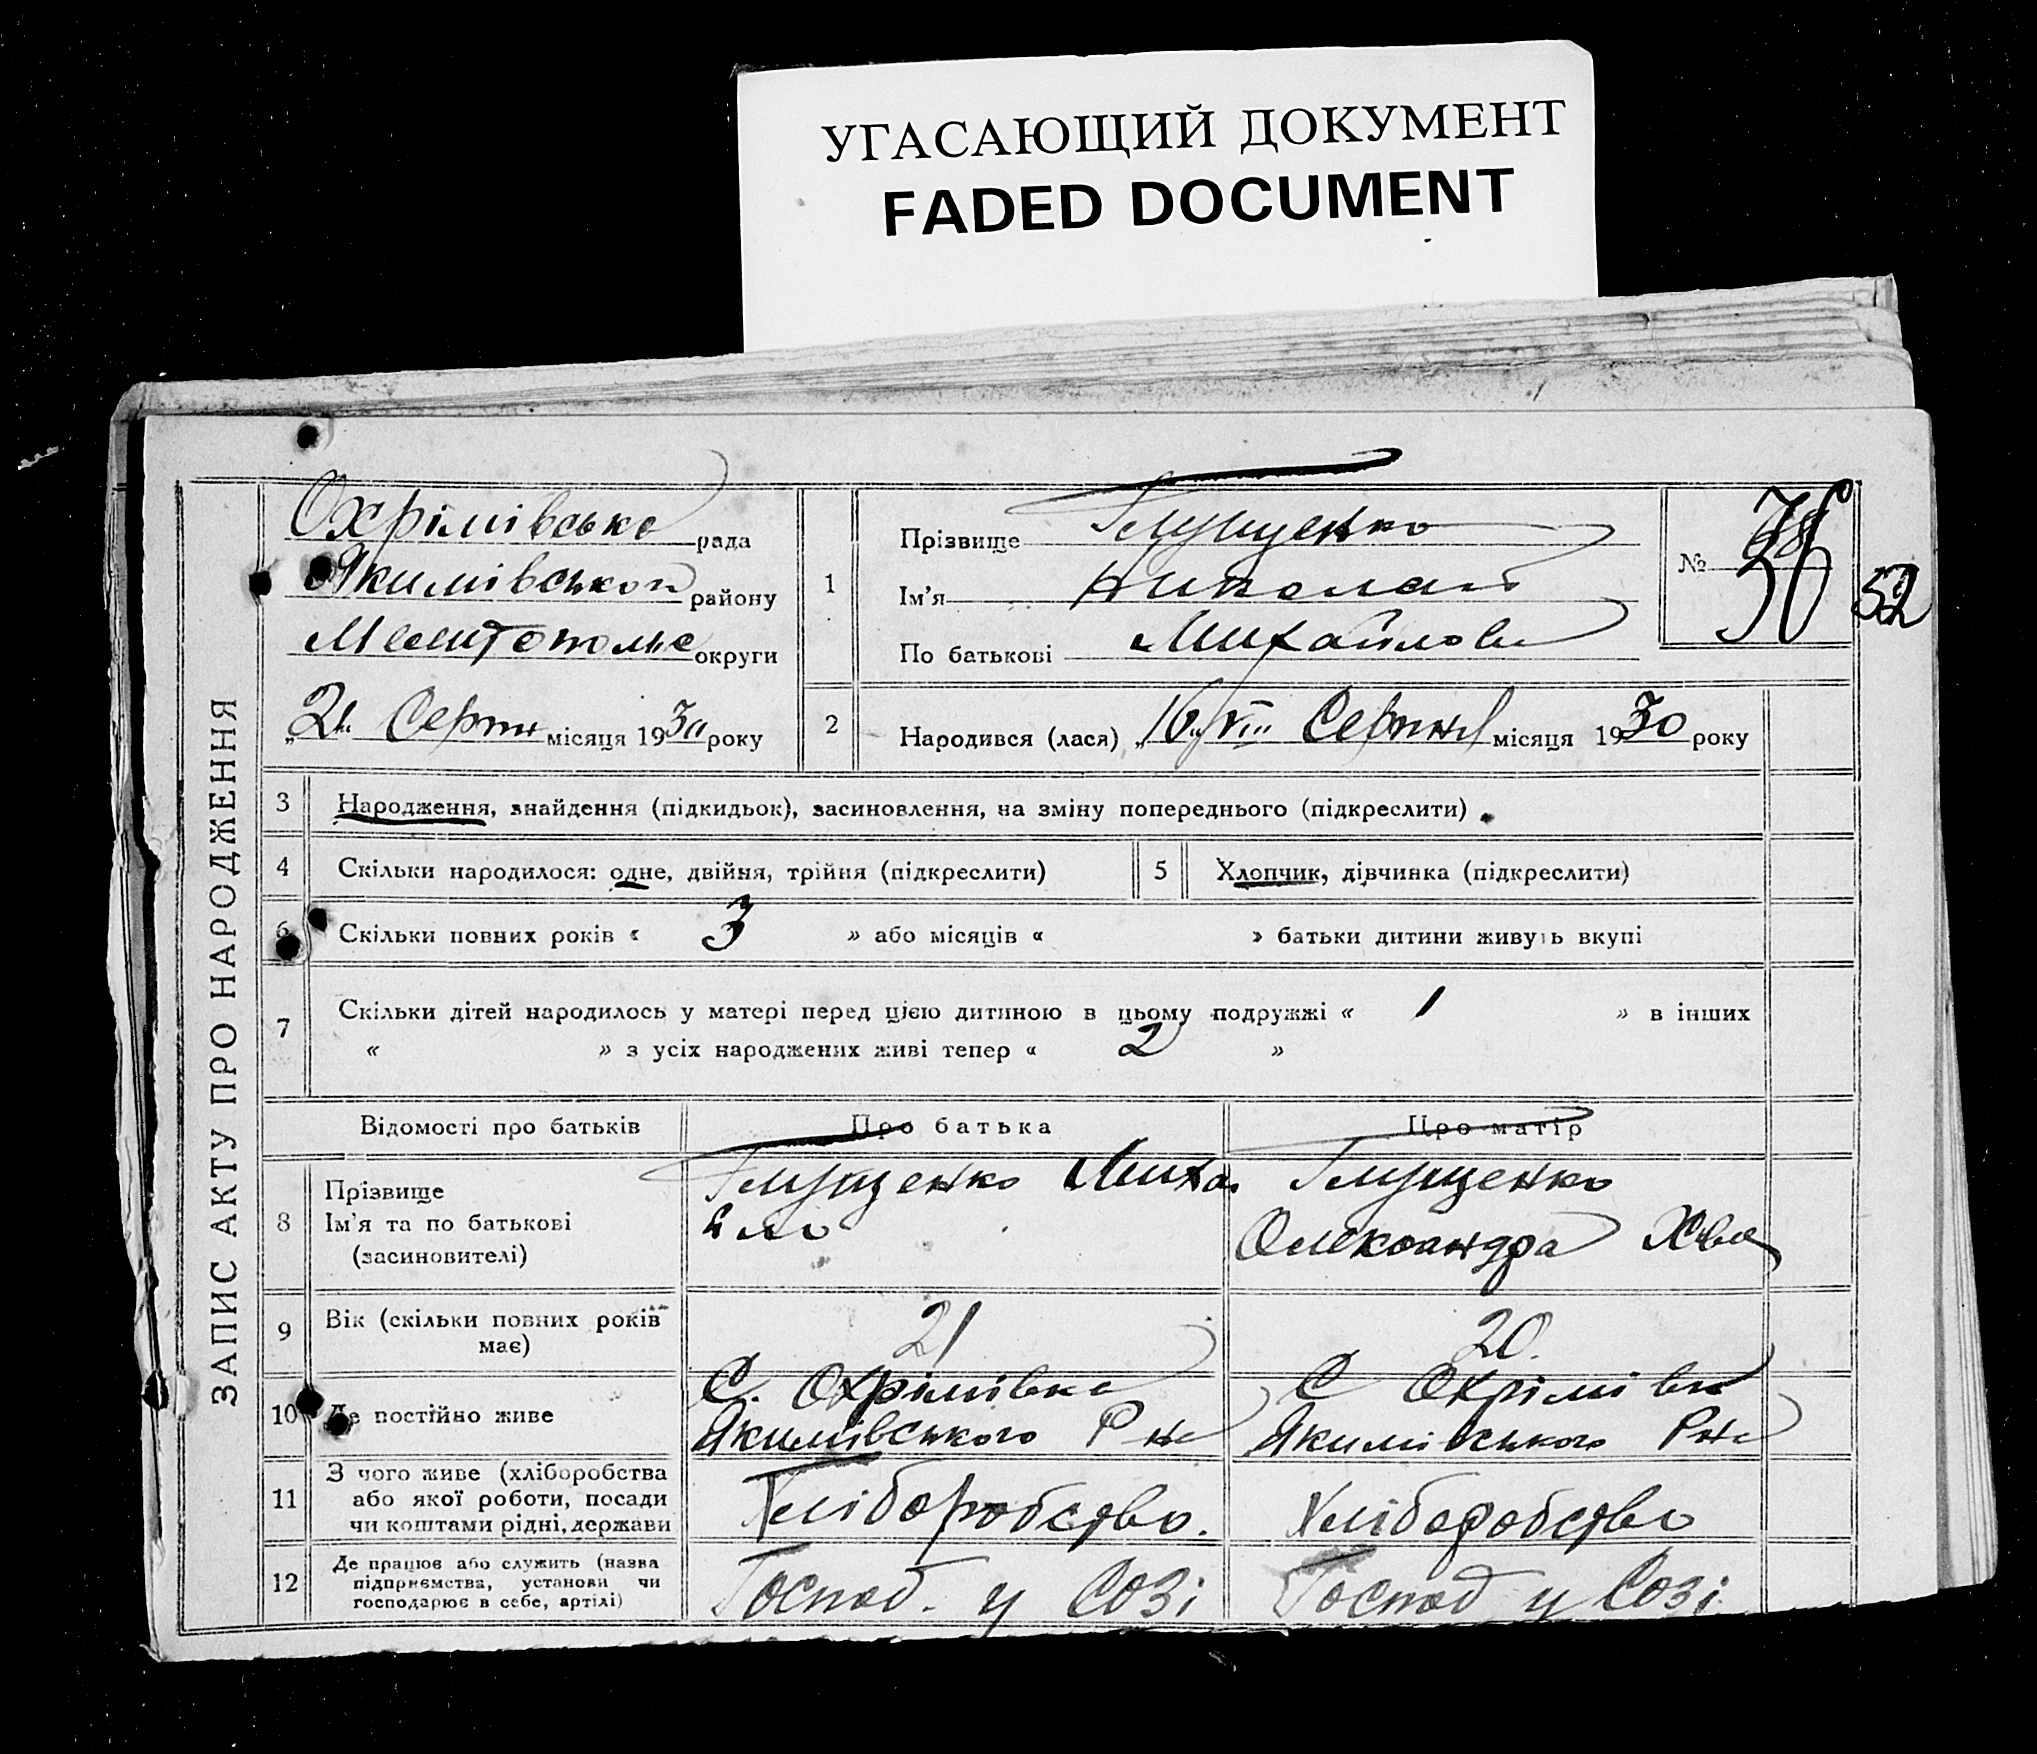 УГАСАЮЩИЙ ДОКУМЕНТ
FADED DOCUMENT
ЗАПИС АКТУ ПРО НАРОДЖЕННЯ
Охрімівська рада
Якимівського району
Мелитопольс округи
„21" Серпн місяця 1930 року
1
Прізвище Глущенко
Ім'я Николай
По батькові Михайлов
№ 38
52
2 Народився (лася) „16" VIII Серпня місяця 1930 року
3 Народження, знайдення (підкидьок), засиновлення, на зміну попереднього (підкреслити)
4 Скільки народилося: одне, двійня, трійня (підкреслити)
5 Хлопчик, дівчинка (підкреслити)
6 Скільки повних років « 3 » або місяців « » батьки дитини живуть вкупі
7 Скільки дітей народилось у матері перед цією дитиною в цьому подружжі « 1 » в інших
« » з усіх народжених живі тепер « 2 »
Відомості про батьків Про батька Про матір
8
Прізвище
Ім'я та по батькові
(засиновителі)
Глущенко Миха
Глущенко
Олександра Хве
9
Вік (скільки повних років
має)
21
20
10 Де постійно живе
С. Охрімівка
Якимівського Р на
С Охрімівк
Якимівського Рна
11
З чого живе (хліборобства
або якої роботи, посади
чи коштами рідні, держави
Хліборобство.
Хліборобство
12
Де працює або служить (назва
підприємства, установи чи
господарює в себе, артілі)
Господ. у Созі
Господ у Созі